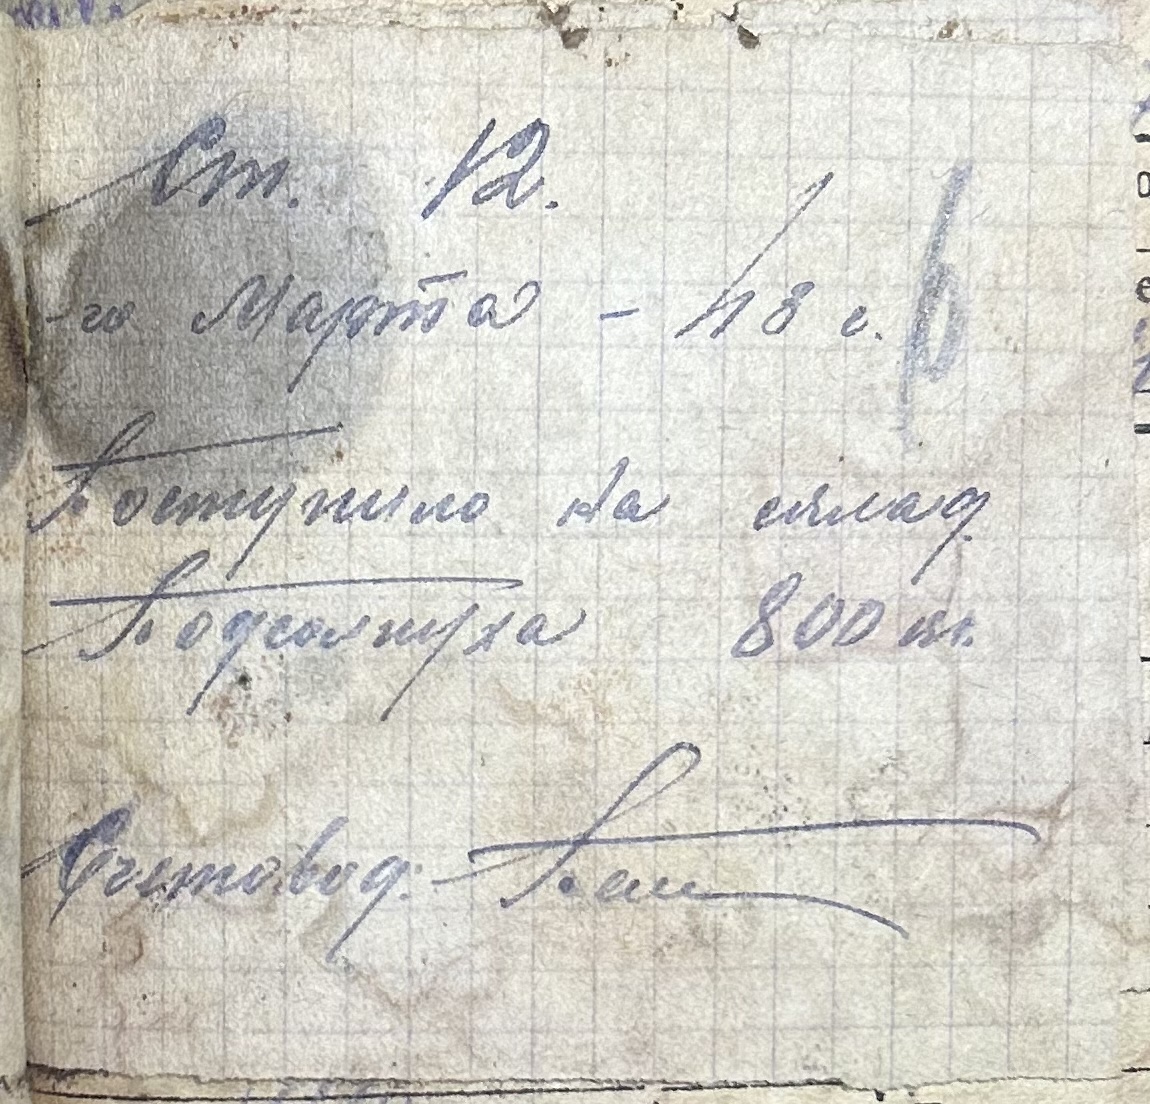 Ст. 12.
-го Марта - 48 г.
Поступило на склад.
Подсолнуха 800 кг.
Счетовод:-